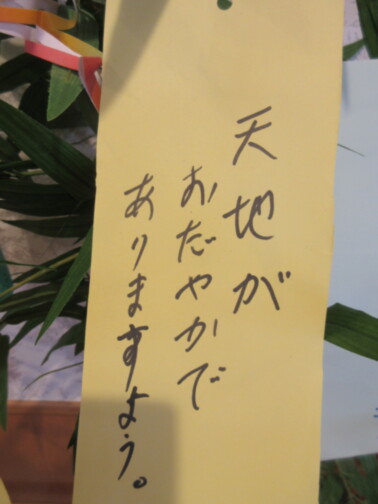 天地が
おだやかで
ありますよう。